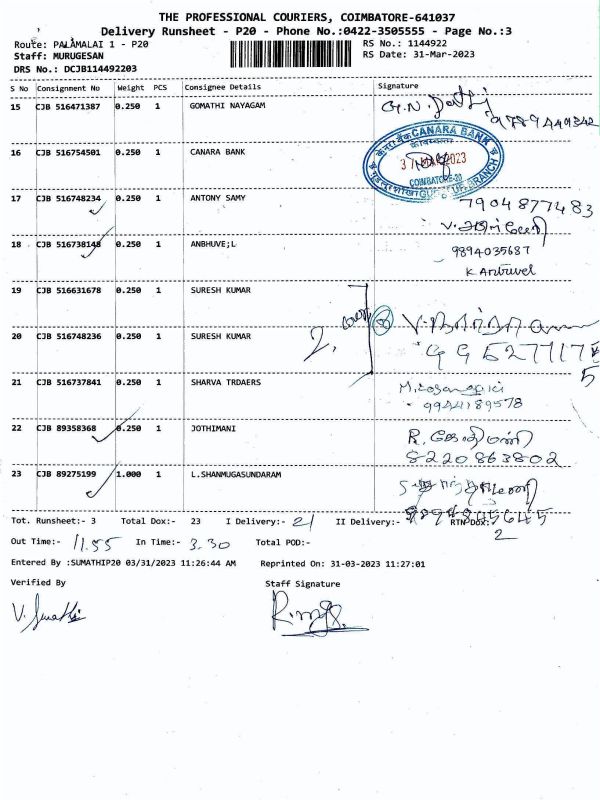 THE PROFESSIONAL COURIERS, COIMBATORE-641037
Delivery Runsheet - P20 - Phone No.:0422-3505555 - Page No.:3
Route: PALAMALAI 1 - P20
RS No.: 1144922
Staff: MURUGESAN
RS Date: 31-Mar-2023
DRS No.: DCJB114492203
S No Consignment No Weight PCS Consignee Details Signature
15 CJB 516471387 0.250 1 GOMATHI NAYAGAM
9789449342
16 CJB 516754501 0.250 1 CANARA BANK
CANARA BANK
2023
COIMBATORE-20
BRANCH
17 CJB 516748234 0.250 1 ANTONY SAMY
7904877483
18 CJB 516738148 0.250 1 ANBHUVE;L
9894035687
K Anbuvel
19 CJB 516631678 0.250 1 SURESH KUMAR
20 CJB 516748236 0.250 1 SURESH KUMAR
2.
21 CJB 516737841 0.250 1 SHARVA TRDAERS
9944189578
22 CJB 89358368 0.250 1 JOTHIMANI
8220863802
23 CJB 89275199 1.000 1 L.SHANMUGASUNDARAM
Tot. Runsheet:- 3 Total Dox:- 23 I Delivery:- 21 II Delivery:- RTN Dox:- 2
Out Time:- 11.55 In Time:- 3.30 Total POD:-
Entered By :SUMATHIP20 03/31/2023 11:26:44 AM Reprinted On: 31-03-2023 11:27:01
Verified By Staff Signature